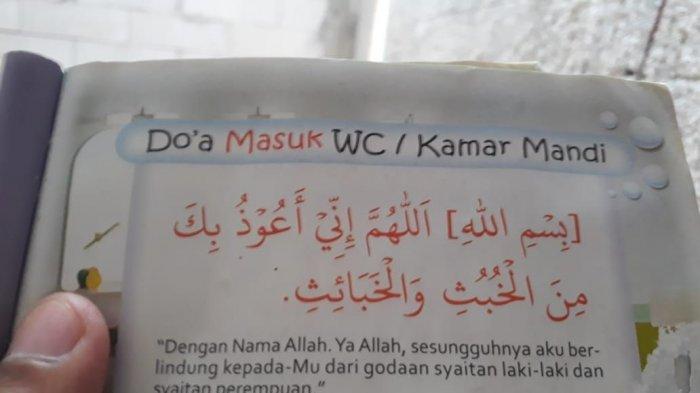 Do'a Masuk WC / Kamar Mandi
[بِسْمِ اللهِ] اَللّٰهُمَّ إِنِّيْ أَعُوْذُ بِكَ
مِنَ الْخُبُثِ وَالْخَبَائِثِ.
"Dengan Nama Allah. Ya Allah, sesungguhnya aku ber-
lindung kepada-Mu dari godaan syaitan laki-laki dan
syaitan perempuan."